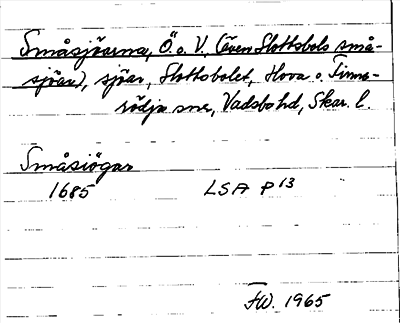 Småsjöarna, Ö. o. V. (även Slottsbols små-
sjöar), sjöar, Slottsbolet, Hova o. Tives-
rödja snr, Vadsbo hd, Skar. l.
Småsiögar
1685 LSA P 13
FW. 1965